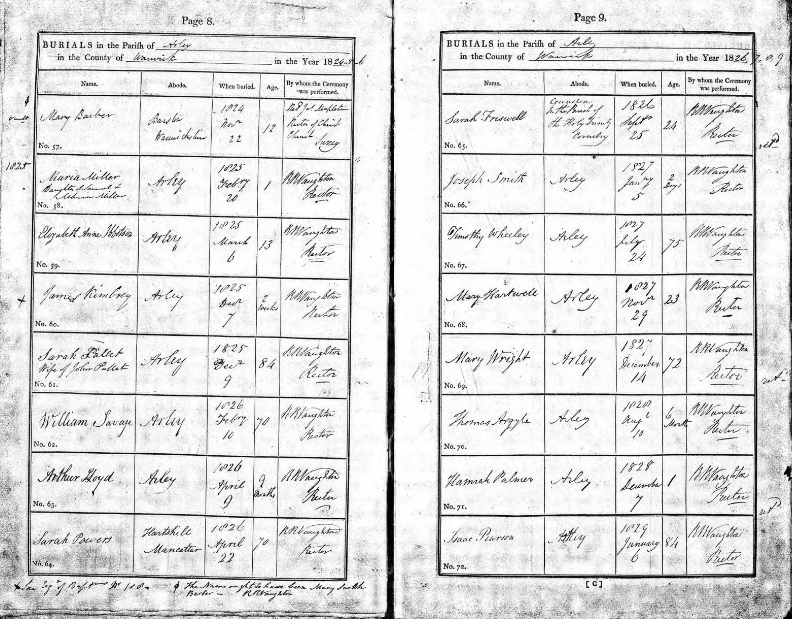 Page 8.
BURIALS in the Parish of Arley
in the County of Warwick in the Year 182
Name. Abode. When buried. Age. By whom the Ceremony was performed.
Mary Barber
No. 57.
Warwickshire
1824
Novr
22
12
Rector of Christ
Church
Surrey
1825
Maria Miller
Daughter of Samuel &
Miller
No. 58.
Arley
1825
Feby
20
1
RRVaughton
Rector
Elizabeth Anne
No. 59.
Arley
1825
March
6
13
RRVaughton
Rector
James Kimbrey
No. 60.
Arley
1825
Decr
7
2
weeks
RRVaughton
Rector
Sarah Pallet
Wife of John Pallet
No. 61.
Arley
1825
Decr
9
84
RRVaughton
Rector
William Savage
No. 62.
Arley
1826
Feby
10
70
RRVaughton
Rector
Arthur Lloyd
No. 63.
Arley
1826
April
9
9
months
RRVaughton
Rector
Sarah Powers
No. 64.
Hartshill
Mancetter
1826
April
22
70
RRVaughton
Rector
The Name ought to have been Mary
Barber RRVaughton
Page 9.
BURIALS in the Parish of Arley
in the County of Warwick in the Year 1826
Name. Abode. When buried. Age. By whom the Ceremony was performed.
Sarah Freswell
No. 65.
in the Parish of
the Holy Trinity
Coventry
1826
Septr
25
24
RRVaughton
Rector
Joseph Smith
No. 66.
Arley
1827
Jany
5
2
Days
RRVaughton
Rector
Timothy Wheeley
No. 67.
Arley
1827
24
75
RRVaughton
Rector
Mary Hartwell
No. 68.
Arley
1827
Novr
29
23
RRVaughton
Rector
Mary Wright
No. 69.
Arley
1827
December
14
72
RRVaughton
Rector
Thomas Argyle
No. 70.
Arley
1828
Augt
10
6
Month
RRVaughton
Rector
Hannah Palmer
No. 71.
Arley
1828
December
7
1
RRVaughton
Rector
Isaac Pearson
No. 72.
Arley
1829
January
6
84
RRVaughton
Rector
[ C ]